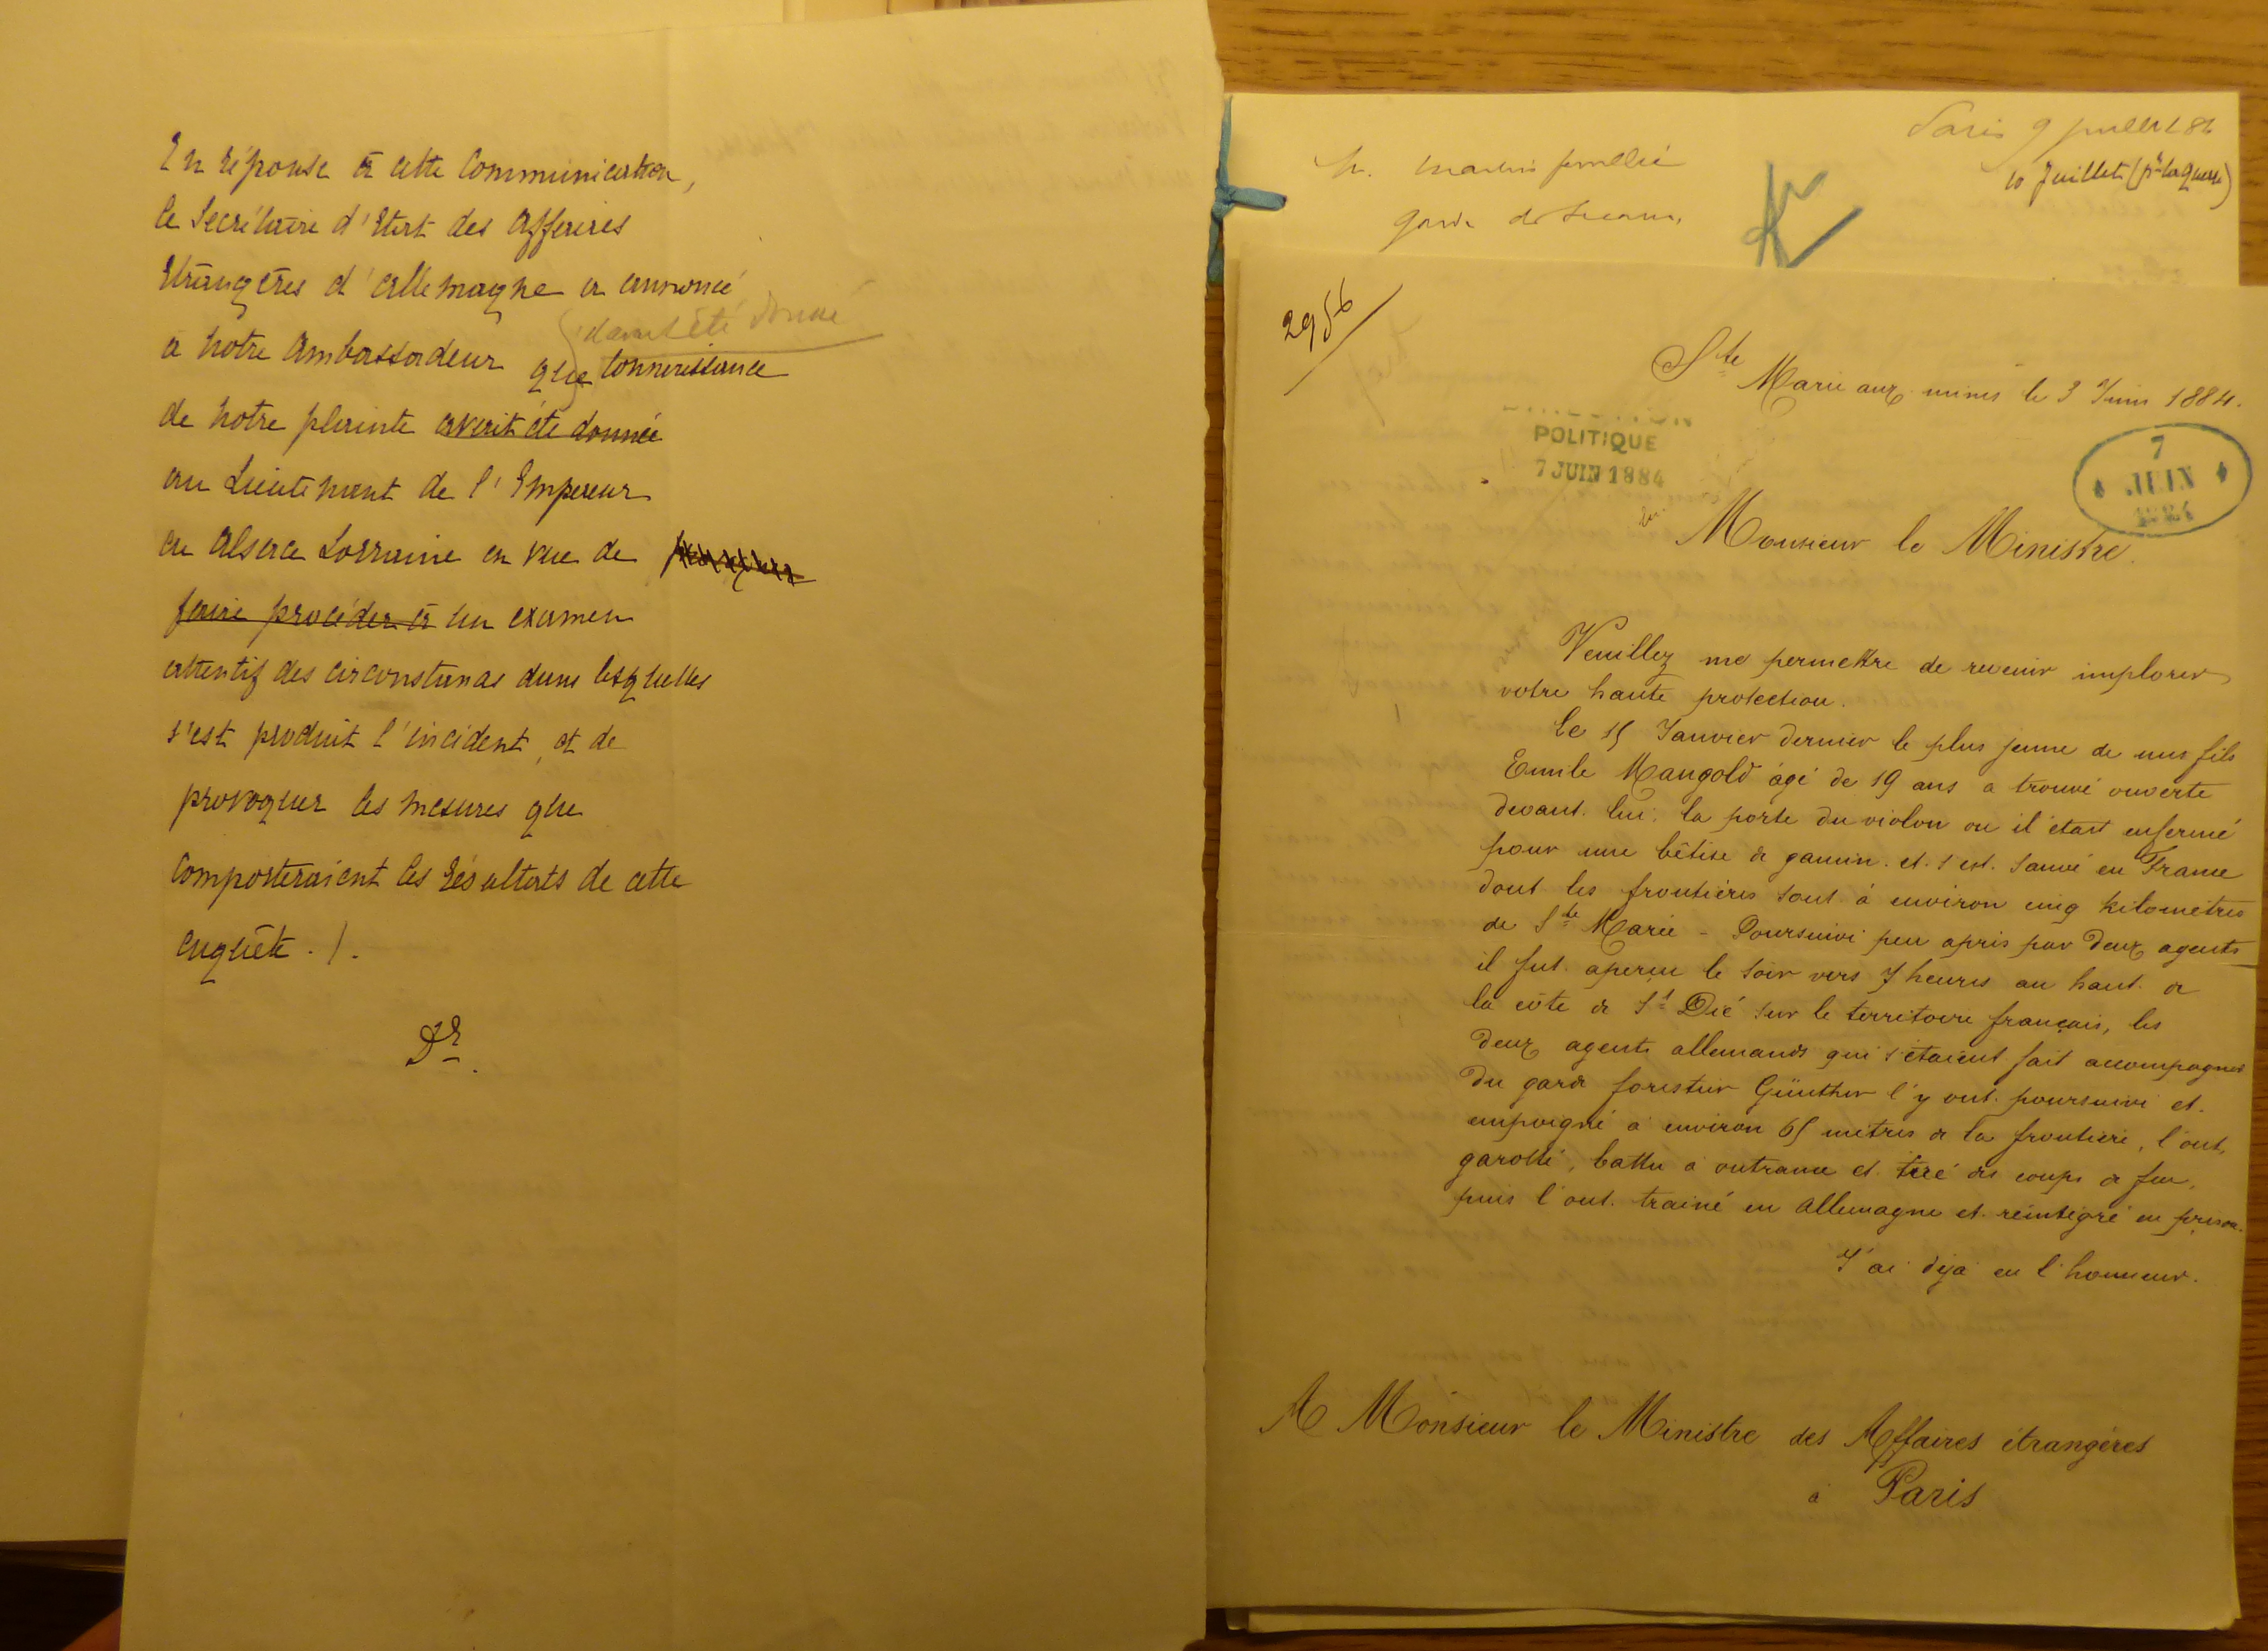 En réponse à cette Communication,
le Secrétaire d'Etat des Affaires
Etrangères d'Allemagne a annoncé
avait été donné
à notre Ambassadeur que connaissance
de notre plainte avait été donnée
au Lieutenant de l'Empereur
en Alsace Lorraine en vue de
faire procéder à un examen
attentif des circonstances dans lesquelles
s'est produit l'incident, et de
provoquer les mesures que
comporteraient les résultats de cette
enquête ./.
Dr.
Paris 9 juillet 84
10 Juillet
M. Martin feuillée
garde des Sceaux,
2956
Ste Marie aux mines le 3 Juin 1884.
POLITIQUE
7 JUIN 1884
7
JUIN
1884
Monsieur le Ministre.
Veuillez me permettre de revenir implorer
votre haute protection.
Le 15 Janvier dernier le plus jeune de mes fils
Emile Mangold âgé de 19 ans a trouvé ouverte
devant lui, la porte du violon ou il était enfermé
pour une bêtise de gamin et s'est sauvé en France
dont les frontières sont à environ cinq kilomètres
de Ste Marie - Poursuivi peu après par deux agents
il fut aperçu le soir vers 7 heures au haut de
la côte de St Dié sur le territoire français, les
deux agents allemands qui s'étaient fait accompagner
du garde forestier Günther l'y ont poursuivi et
empoigné à environ 65 mètres de la frontière, l'ont
garotté, battu à outrance et tiré des coups de feu,
puis l'ont trainé en Allemagne et réintégré en prison.
J'ai déja eu l'honneur.
A Monsieur le Ministre des Affaires étrangères
à Paris